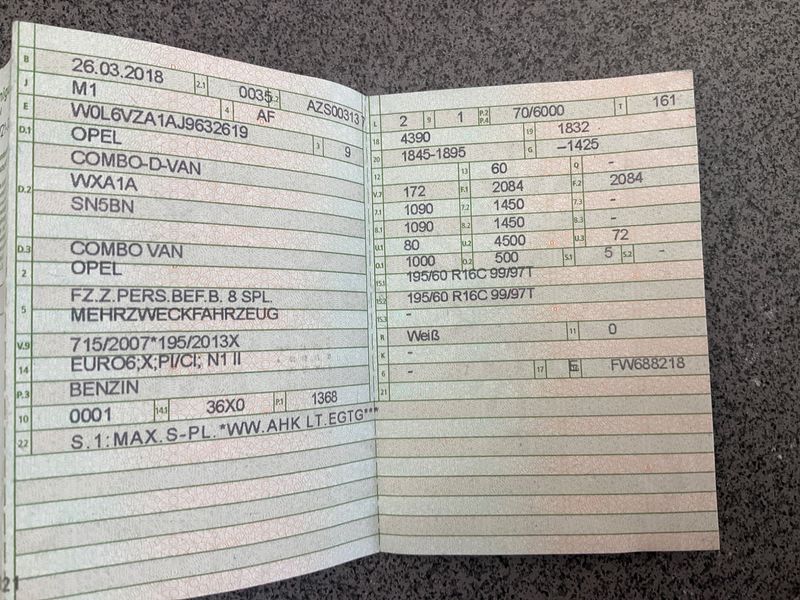 B 26.03.2018 2.1 0035 2.2 AZS003137
J M1 4 AF
E W0L6VZA1AJ9632619 3 9
D.1 OPEL
D.2 COMBO-D-VAN
WXA1A
SN5BN
D.3 COMBO VAN
2 OPEL
5 FZ.Z.PERS.BEF.B. 8 SPL.
MEHRZWECKFAHRZEUG
V.9 715/2007*195/2013X
14 EURO6;X;PI/CI; N1 II
P.3 BENZIN
10 0001 14.1 36X0 P.1 1368
22 S.1:MAX.S-PL.*WW.AHK LT.EGTG***
L 2 9 1 P.2 P.4 70/6000 T 161
18 4390 19 1832
20 1845-1895 G –1425
12 13 60 Q -
V.7 172 F.1 2084 F.2 2084
7.1 1090 7.2 1450 7.3 -
8.1 1090 8.2 1450 8.3 -
U.1 80 U.2 4500 U.3 72
O.1 1000 O.2 500 S.1 5 S.2 -
15.1 195/60 R16C 99/97T
15.2 195/60 R16C 99/97T
15.3 -
R Weiß 11 0
K -
6 - 17 E 16 FW688218
21
21